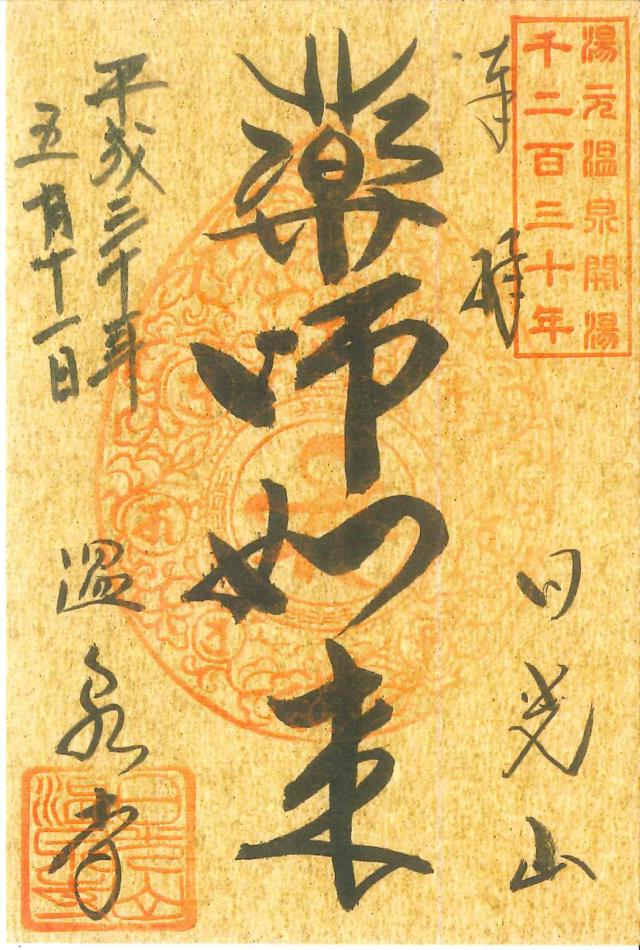 湯元温泉開湯
千二百三十年
奉拝
日光山
薬師如来
平成三十年
五月十一日
温泉寺